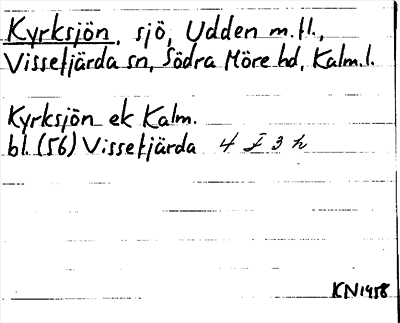 Kyrksjön, sjö, Udden m.fl.,
Vissefjärda sn, Södra Möre hd, Kalm.l.
Kyrksjön ek Kalm.
bl. (56) Vissefjärda 4 F 3 h
KN1958